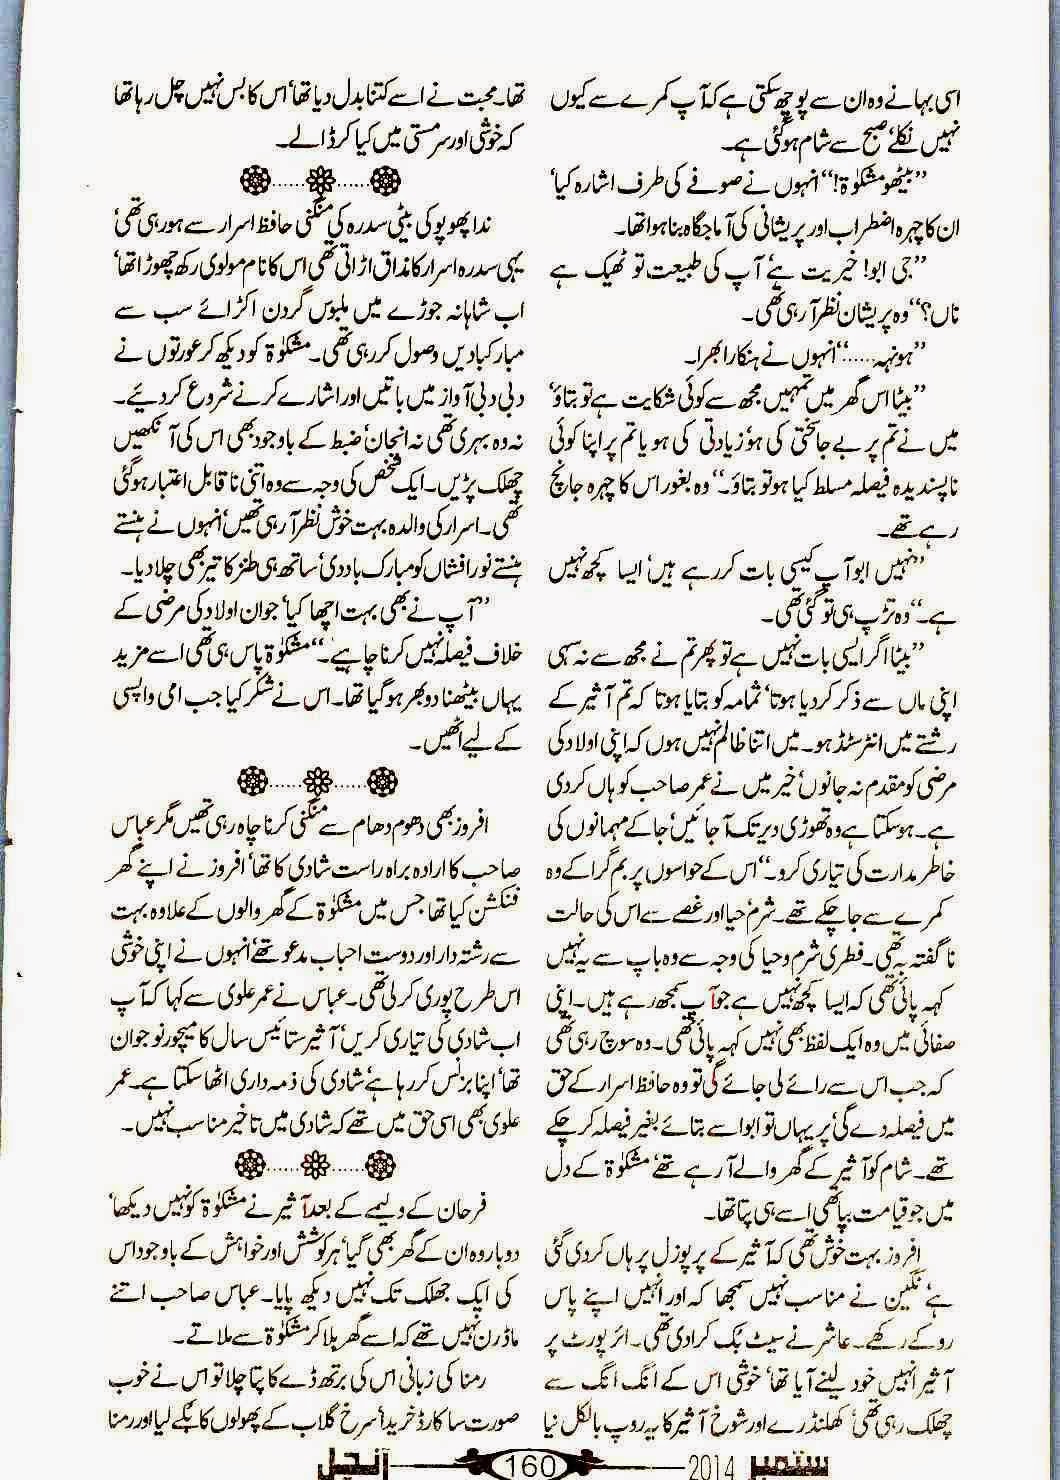 اسی بہانے وہ ان سے پوچھ سکتی ہے کہ آپ کمرے سے کیوں
نہیں نکلے صبح سے شام ہوگئی ہے۔
”بیٹھو مشکوٰۃ!“ انہوں نے صوفے کی طرف اشارہ کیا‘
ان کا چہرہ اضطراب اور پریشانی کی آماجگاہ بنا ہوا تھا۔
”جی ابو! خیریت ہے‘ آپ کی طبیعت تو ٹھیک ہے
ناں؟“ وہ پریشان نظر آرہی تھی۔
”ہونہہ......“ انہوں نے ہنکارا بھرا۔
”بیٹا اس گھر میں تمہیں مجھ سے کوئی شکایت ہے تو بتاؤ‘
میں نے تم پر بے جا سختی کی ہو‘ زیادتی کی ہو یا تم پر اپنا کوئی
ناپسندیدہ فیصلہ مسلط کیا ہو تو بتاؤ۔“ وہ بغور اس کا چہرہ جانچ
رہے تھے۔
”نہیں ابو آپ کیسی بات کررہے ہیں‘ ایسا کچھ نہیں
ہے۔“ وہ تڑپ ہی تو گئی تھی۔
”بیٹا اگر ایسی بات نہیں ہے تو پھر تم نے مجھ سے نہ سہی
اپنی ماں سے ذکر کردیا ہوتا‘ ثمامہ کو بتایا ہوتا کہ تم آثیر کے
رشتے میں انٹرسٹڈ ہو۔ میں اتنا ظالم نہیں ہوں کہ اپنی اولاد کی
مرضی کو مقدم نہ جانوں‘ خیر میں نے عمر صاحب کو ہاں کردی
ہے۔ ہوسکتا ہے وہ تھوڑی دیر تک آجائیں‘ جاکے مہمانوں کی
خاطر مدارت کی تیاری کرو۔“ اس کے حواسوں پر بم گرا کے وہ
کمرے سے جاچکے تھے۔ شرم‘ حیا اور غصے سے اس کی حالت
ناگفتہ بہ تھی۔ فطری شرم و حیا کی وجہ سے وہ باپ سے یہ نہیں
کہہ پائی تھی کہ ایسا کچھ نہیں ہے جو آپ سمجھ رہے ہیں۔ اپنی
صفائی میں وہ ایک لفظ بھی نہیں کہہ پائی تھی۔ وہ سوچ رہی تھی
کہ جب اس سے رائے لی جائے گی تو وہ حافظ اسرار کے حق
میں فیصلہ دے گی‘ پر یہاں تو ابو اسے بتائے بغیر فیصلہ کرچکے
تھے۔ شام کو آثیر کے گھر والے آرہے تھے‘ مشکوٰۃ کے دل
میں جو قیامت بپا تھی اسے ہی پتا تھا۔
افروز بہت خوش تھی کہ آثیر کے پرپوزل پر ہاں کردی گئی
ہے‘ نگین نے مناسب نہیں سمجھا کہ اور انہیں اپنے پاس
روکے رکھے۔ عاشر نے سیٹ بک کرادی تھی۔ ائرپورٹ پر
آثیر انہیں خود لینے آیا تھا‘ خوشی اس کے انگ انگ سے
چھلک رہی تھی‘ کھلنڈرے اور شوخ آثیر کا یہ روپ بالکل نیا
تھا۔ محبت نے اسے کتنا بدل دیا تھا‘ اس کا بس نہیں چل رہا تھا
کہ خوشی اور سرمستی میں کیا کر ڈالے۔
ندا پھوپو کی بیٹی سدرہ کی منگنی حافظ اسرار سے ہورہی تھی‘
یہی سدرہ اسرار کا مذاق اڑاتی تھی اس کا نام مولوی رکھ چھوڑا تھا‘
اب شاہانہ جوڑے میں ملبوس گردن اکڑائے سب سے
مبارکبادیں وصول کررہی تھی۔ مشکوٰۃ کو دیکھ کر عورتوں نے
دبی دبی آواز میں باتیں اور اشارے کرنے شروع کردیے۔
نہ وہ بہری تھی نہ انجان‘ ضبط کے باوجود بھی اس کی آنکھیں
چھلک پڑیں۔ ایک شخص کی وجہ سے وہ اتنی ناقابل اعتبار ہوگئی
تھی۔ اسرار کی والدہ بہت خوش نظر آرہی تھیں‘ انہوں نے ہنستے
ہنستے نور افشاں کو مبارک باد دی‘ ساتھ ہی طنز کا تیر بھی چلا دیا۔
”آپ نے بھی بہت اچھا کیا‘ جوان اولاد کی مرضی کے
خلاف فیصلہ نہیں کرنا چاہیے۔“ مشکوٰۃ پاس ہی تھی اسے مزید
یہاں بیٹھنا دوبھر ہوگیا تھا۔ اس نے شکر کیا جب امی واپسی
کے لیے اٹھیں۔
افروز بھی دھوم دھام سے منگنی کرنا چاہ رہی تھیں مگر عباس
صاحب کا ارادہ براہ راست شادی کا تھا‘ افروز نے اپنے گھر
فنکشن کیا تھا جس میں مشکوٰۃ کے گھر والوں کے علاوہ بہت
سے رشتہ دار اور دوست احباب مدعو تھے‘ انہوں نے اپنی خوشی
اس طرح پوری کرلی تھی۔ عباس نے عمر علوی سے کہا کہ آپ
اب شادی کی تیاری کریں‘ آثیر ستائیس سال کا میچور نوجوان
تھا‘ اپنا بزنس کررہا ہے‘ شادی کی ذمہ داری اٹھا سکتا ہے۔ عمر
علوی بھی اسی حق میں تھے کہ شادی میں تاخیر مناسب نہیں۔
فرحان کے ولیمے کے بعد آثیر نے مشکوٰۃ کو نہیں دیکھا‘
دوبارہ وہ ان کے گھر بھی گیا‘ ہر کوشش اور خواہش کے باوجود اس
کی ایک جھلک تک نہیں دیکھ پایا۔ عباس صاحب اتنے
ماڈرن نہیں تھے کہ اسے گھر بلا کر مشکوٰۃ سے ملاتے۔
رمنا کی زبانی اس کی برتھ ڈے کا پتا چلا تو اس نے خوب
صورت سا کارڈ خریدا‘ سرخ گلاب کے پھولوں کا بکے لیا اور رمنا
ستمبر 2014 160 آنچل